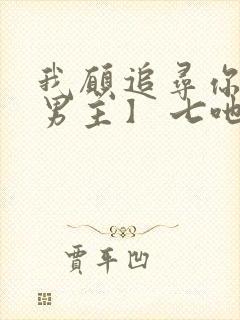 我願追尋你
男主】 七吔
賈平凹